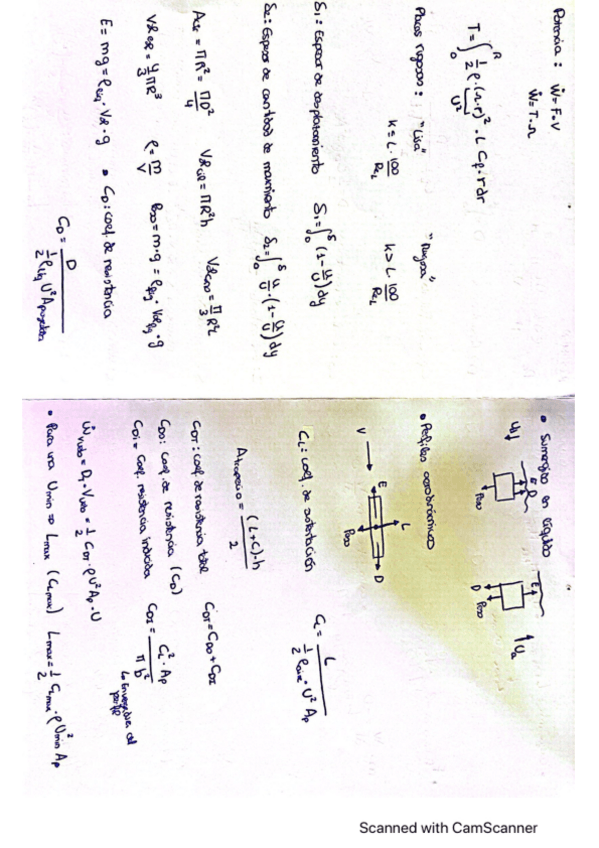 Potencia: Ẇ = F·V
Ẇ = T·Ω
T = ∫₀ᴿ ½ ρ·(Ω·r)²·L Cf·r dr
U²
Placas rugosas: "Lisa" "Rugosa"
K ≤ L·100/ReL K > L·100/ReL
δ₁: Espesor de desplazamiento δ₁ = ∫₀^δ (1 - u/U) dy
δ₂: Espesor de cantidad de movimiento δ₂ = ∫₀^δ u/U·(1 - u/U) dy
= πR² = πD²/4 = πR²h = π/3 R²
= 4/3 πR³ ρ = m/V Peso = m·g = ·g
E = mg = ·g • CD: coef. de resistencia
CD = D / ½ρ U² A
• Sumergidos en líquido
U E D Peso
E D Peso
• Perfiles aerodinámicos
V E L D Peso
CL: coef. de sustentación CL = L / ½ρaire·U² Ap
A = (L+C)·h / 2
CDT: coef de resistencia total CDT = CD0 + CDI
CD0: coef. de resistencia (CD)
CDI = coef. resistencia inducida CDI = CL²·Ap / π b²
↳ Envergadura del perfil
Ẇvuelo = DT·Vvuelo = ½ CDT·ρU² Ap·U
• Para una Umin ⇒ Lmax (CLmax) Lmax = ½ CLmax·ρ U²min Ap
Scanned with CamScanner